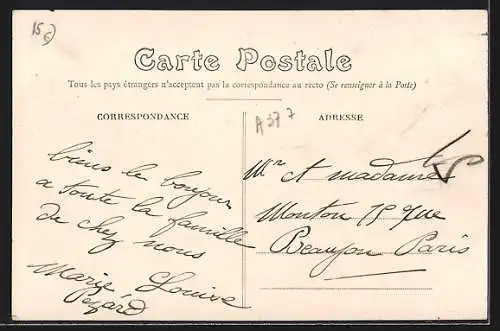 15
Carte Postale
Tous les pays étrangers n'acceptent pas la correspondance au recto (Se renseigner à la Poste)
CORRESPONDANCE
A 377
ADRESSE
biens le bonjour
a toute la famille
de chez nous
Marie Louise
Mr et madame
Mouton 15 rue
Beaujon Paris